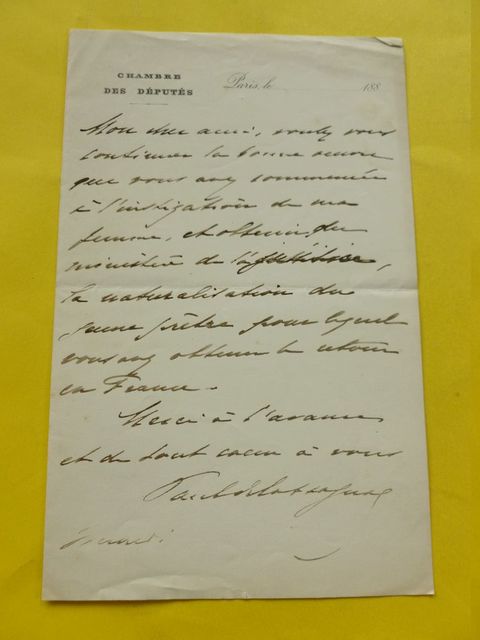 CHAMBRE
DES DÉPUTÉS
Paris, le 188
Mon cher ami, voulez vous
continuer la bonne œuvre
que vous avez commencée
à l'instigation de ma
femme, et obtenir, du
ministère de la justice,
la naturalisation du
jeune prêtre pour lequel
vous avez obtenu le retour
en France.
Merci à l'avance
et de tout cœur à vous
Paul de Cassagnac